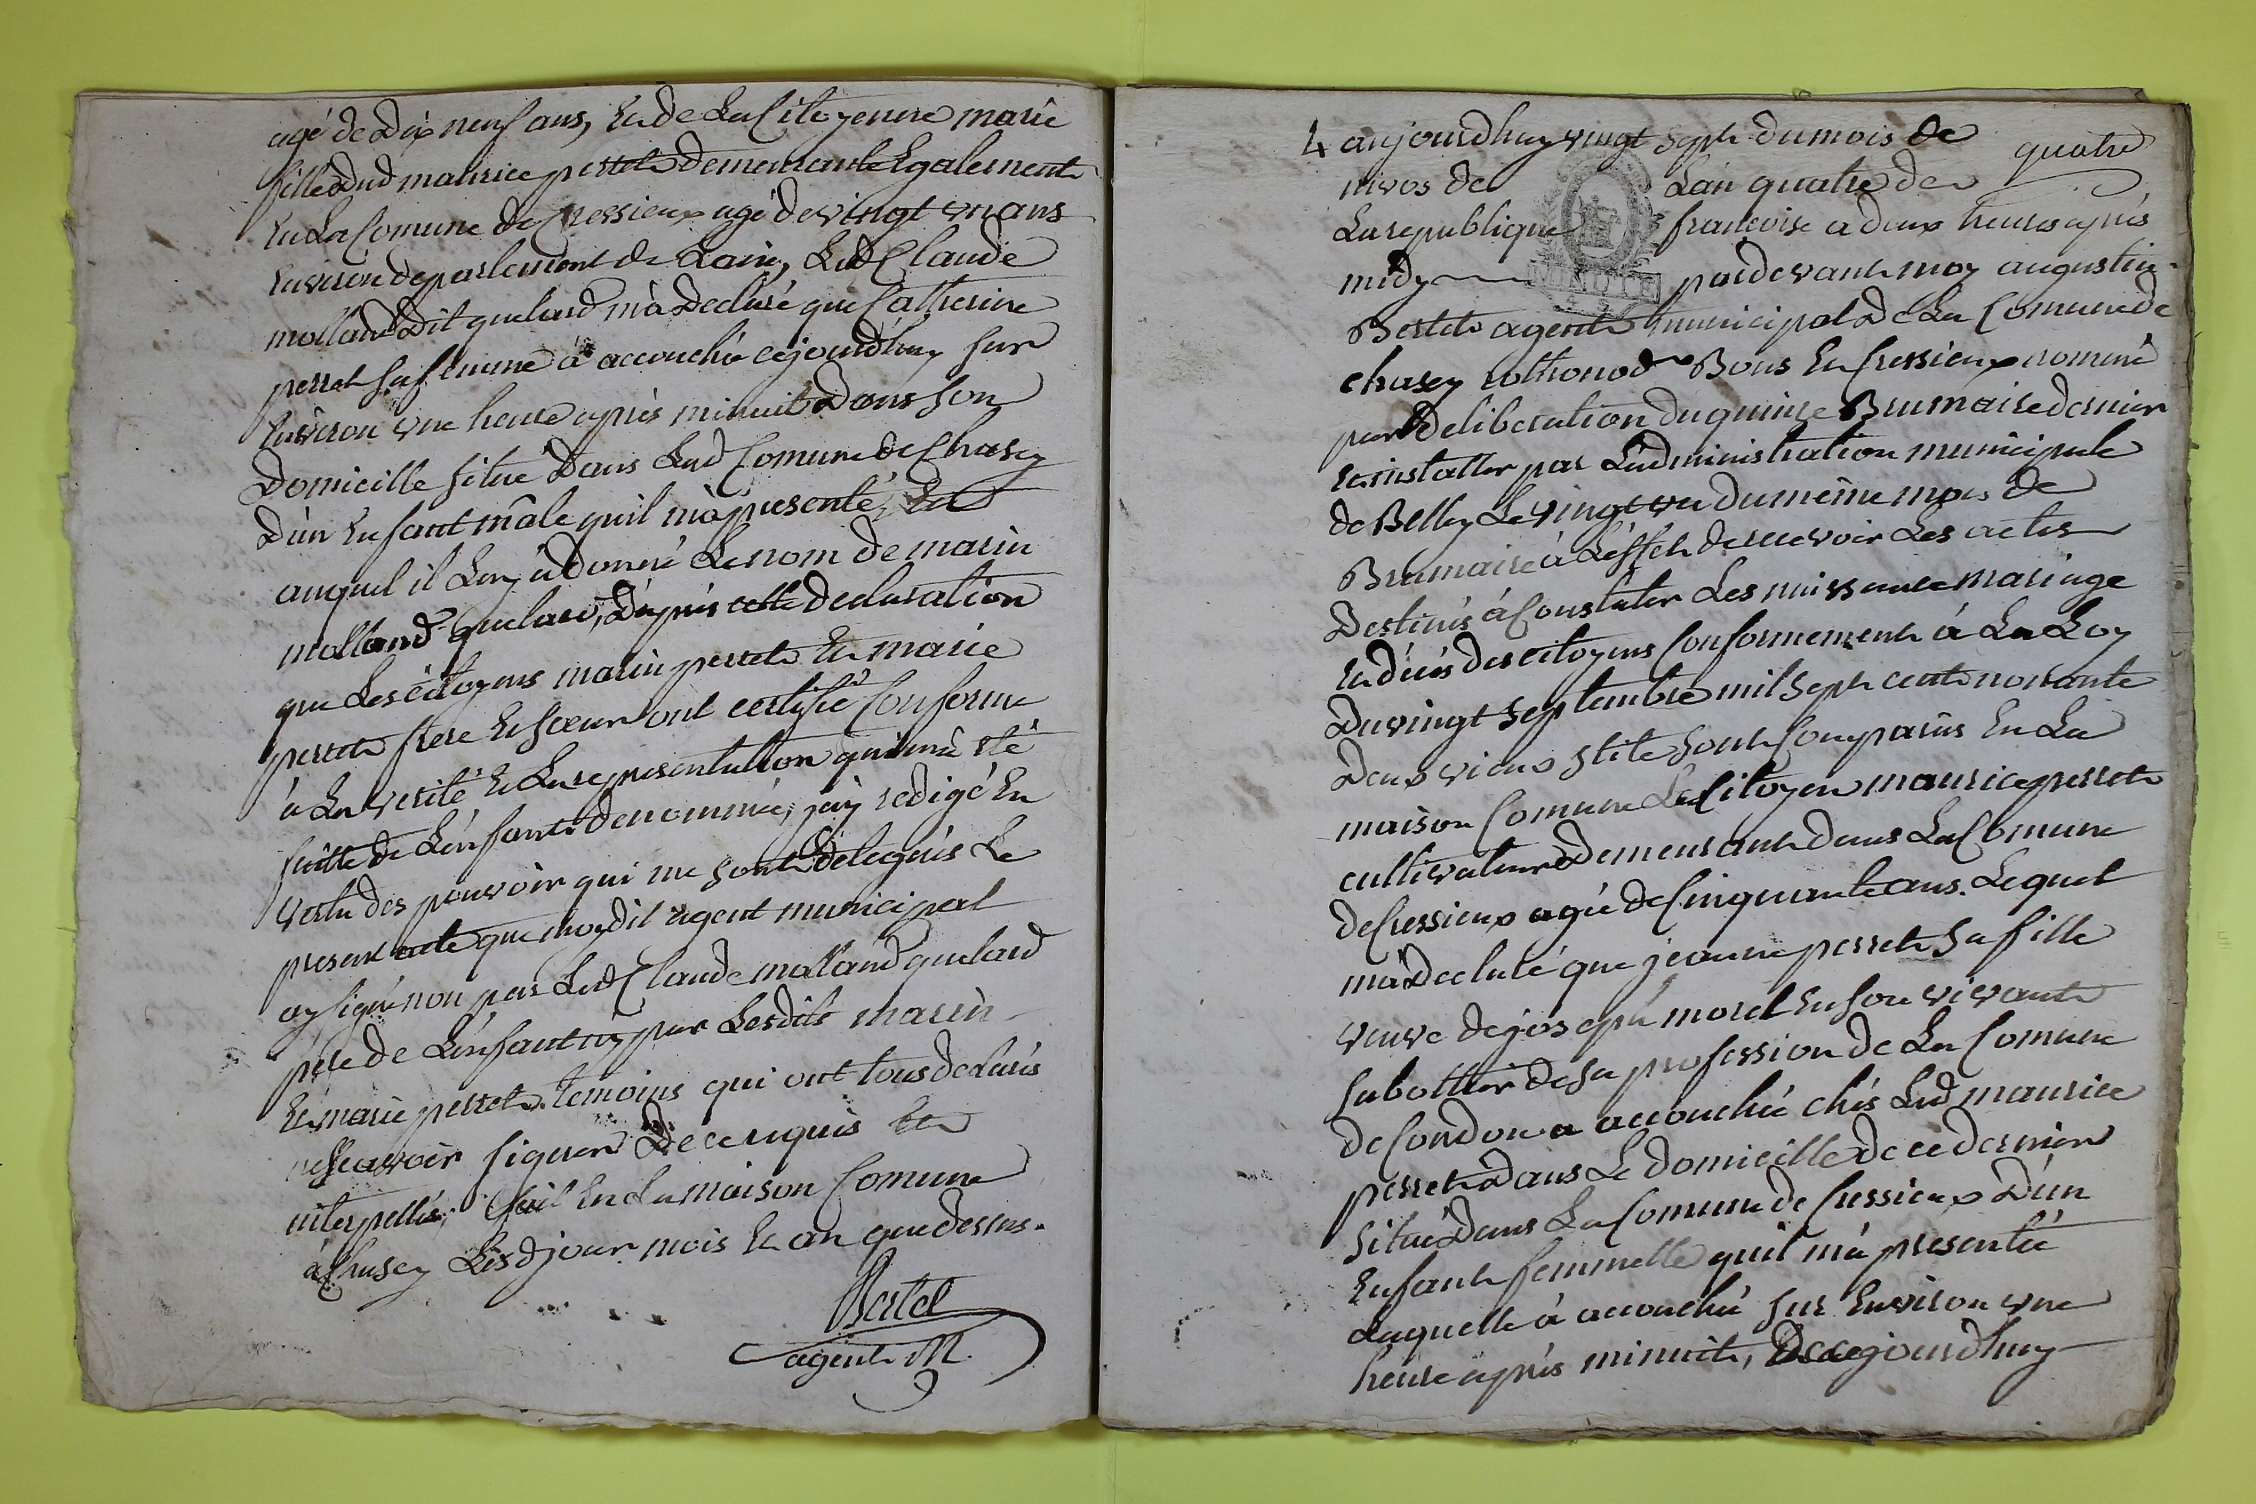 agé de Dix neuf ans, Et de La Citoyenne marie
fille dud maurice perret Demeurante Egalement
En La Comune de Cressieux agé de vingt un ans
Environ departement de Lain, Led Claude
molland Dit guelard m'a Declaré que Catherine
perret sa femme à accouchée cejourd'huy sur
Environ une heure après minuit Dans son
Domicille situé Dans Lad Comune de Chasey
D'un Enfant mâle qu'il m'a presenté, Et
auquel il Luy a donné Le nom de marin
molland guelard, D'après cette declaration
que Les citoyens marin perret Et marie
perret frere Et sœur ont certifié Conforme
à La verité Et La representation qui m'a été
faitte de L'enfant denommée, j'ay redigé En
vertu des pouvoir qui me sont delegués Le
present acte que moydit agent municipal
ay signé non par Led Claude molland guelard
pere de L'enfant ny par Lesdits marin
Et marie perret temoins qui ont tous declarés
ne scavoir signer De ce requis Et
interpellés, fait En La maison Comune
à Chasey Lesd jour mois Et an que dessus.
Bertet
agent M
4 aujourdhuy vingt sept du mois de
quatre
nivos de Lan quatre de
La republique francoise a deux heures après
midy pardevant moy augustin
MINUTE
Bertet agent municipal de La Comune de
chasey rothonod Bons Et Cressieux nommé
par Deliberation du quinze Brumaire dernier
Et installer par L'administration municipale
de Belley Le vingt un du même mois de
Brumaire à L'effet de recevoir Les actes
Destinés à Constater Les naissance mariage
Et décès des citoyens Conformement à La Loy
Du vingt septembre mil sept cent nonante
Deux vieux stile sont Comparus En La
maison Comune Le Citoyen maurice perret
cultivateur Demeurant dans La Comune
de Cressieux agé de Cinquante ans. Lequel
m'a Declaré que jeanne perret sa fille
veuve de joseph morel En son vivant
sabottier de sa profession de La Comune
de Condon a accouchée chés Led maurice
perret Dans Le domicille de ce dernier
situé Dans La Comune de Cressieux D'un
Enfant femmelle qu'il m'a presentée
Laquelle à accouchée sur Environ une
heure après minuit, De cejourdhuy